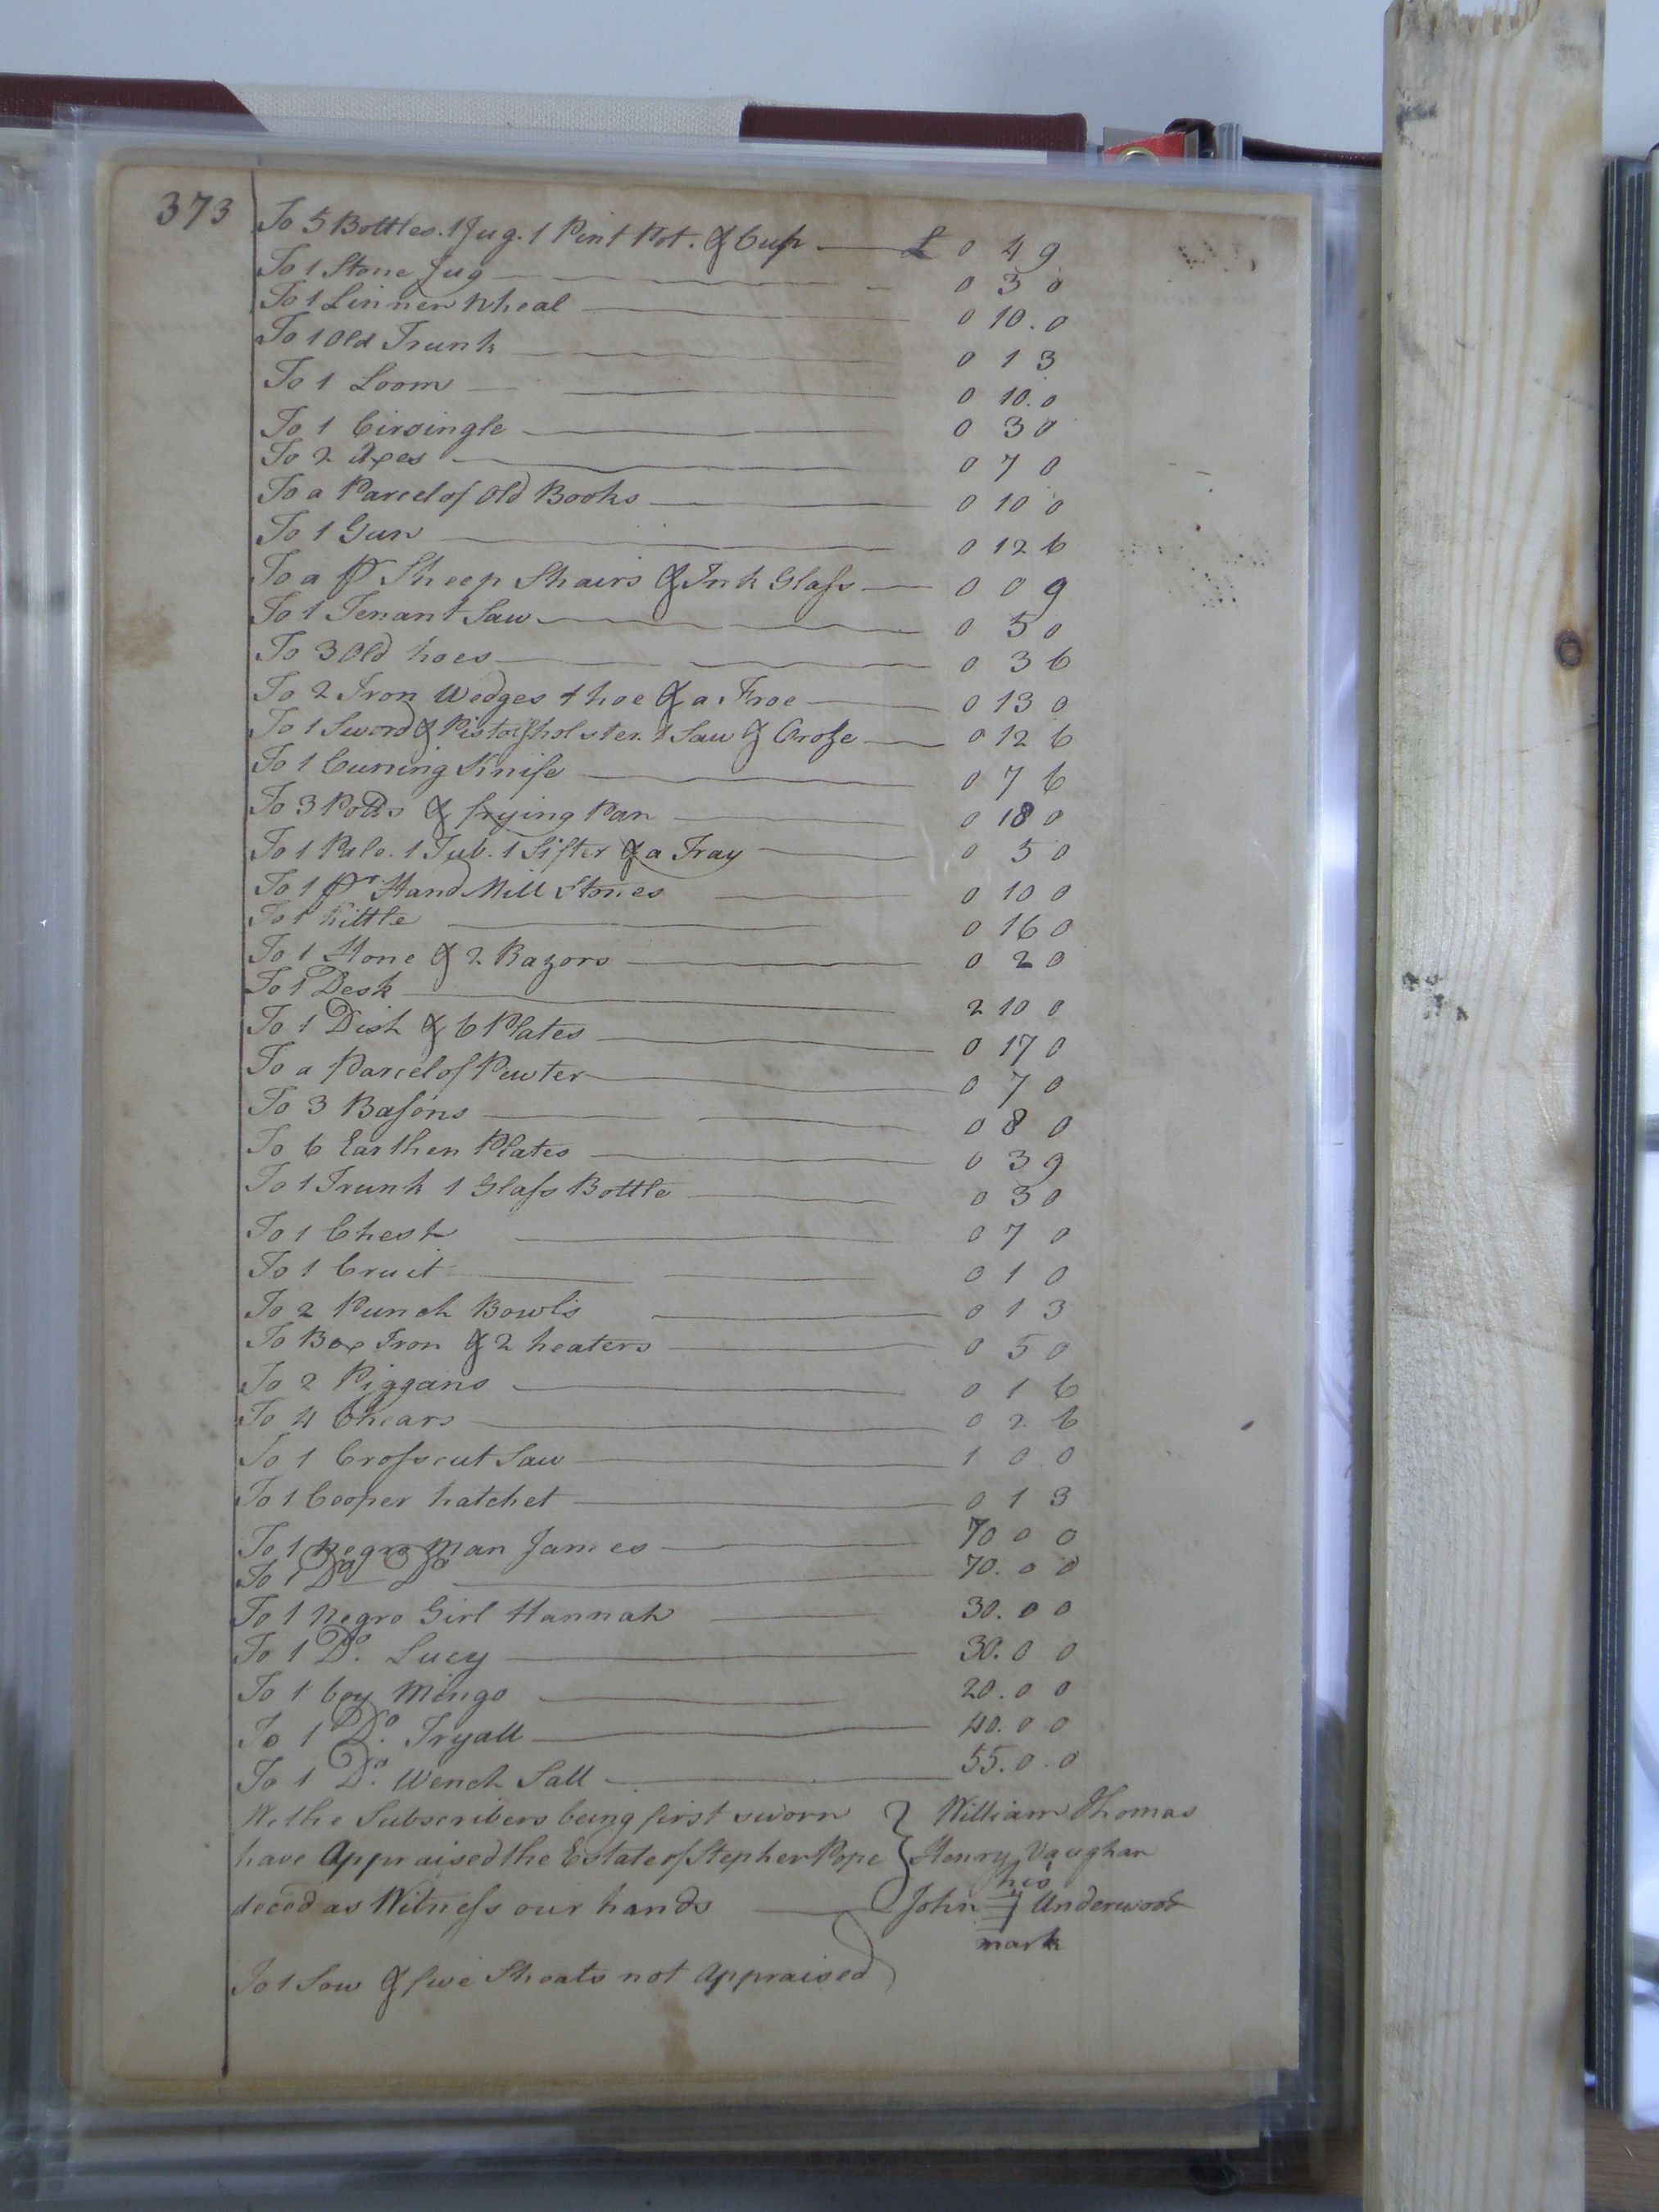 373
To 5 Bottles. 1 Jug. 1 Pint Pot. & Cup £ 0 4 9
To 1 Stone Jug 0 3 0
To 1 Linnen Wheal 0 10. 0
To 1 Old Trunk 0 1 3
To 1 Loom 0 10. 0
To 1 Circingle 0 3 0
To 2 Axes 0 7 0
To a Parcel of Old Books 0 10 0
To 1 Gun 0 12 6
To a pr Sheep Shairs & Ink Glass 0 0 9
To 1 Tenant Saw 0 5 0
To 3 Old hoes 0 3 6
To 2 Iron Wedges 1 hoe & a Froe 0 13 0
To 1 Sword & Pistols holster. 1 Saw & Croze 0 12 6
To 1 Curring Knife 0 7 6
To 3 Potts & frying Pan 0 18 0
To 1 Pale. 1 Tub. 1 Sifter & a Tray 0 5 0
To 1 pr Hand Mill Stones 0 10 0
To 1 Kittle 0 16 0
To 1 Hone & 2 Razors 0 2 0
To 1 Desk 2 10 0
To 1 Dish & 6 Plates 0 17 0
To a Parcel of Pewter 0 7 0
To 3 Basons 0 8 0
To 6 Earthen Plates 0 3 9
To 1 Trunk 1 Glass Bottle 0 3 0
To 1 Chest 0 7 0
To 1 Cruit 0 1 0
To 2 Punch Bowls 0 1 3
To Box Iron & 2 heaters 0 5 0
To 2 Piggans 0 1 6
To 4 Chears 0 2 6
To 1 Crosscut Saw 1 0 0
To 1 Cooper hatchet 0 1 3
To 1 Negro Man James 70 0 0
To 1 Do Do 70. 0 0
To 1 Negro Girl Hannah 30. 0 0
To 1 Do. Lucy 30. 0 0
To 1 boy Mingo 20. 0 0
To 1 Do. Tryall 40. 0 0
To 1 Do. Wench Sall 55. 0. 0
We the Subscribers being first sworn William Thomas
have Appraised the Estate of Stephen Pope Henry Vaughan
his
deced as Witness our hands John Underwood
mark
To 1 Sow & five Shoats not Appraised